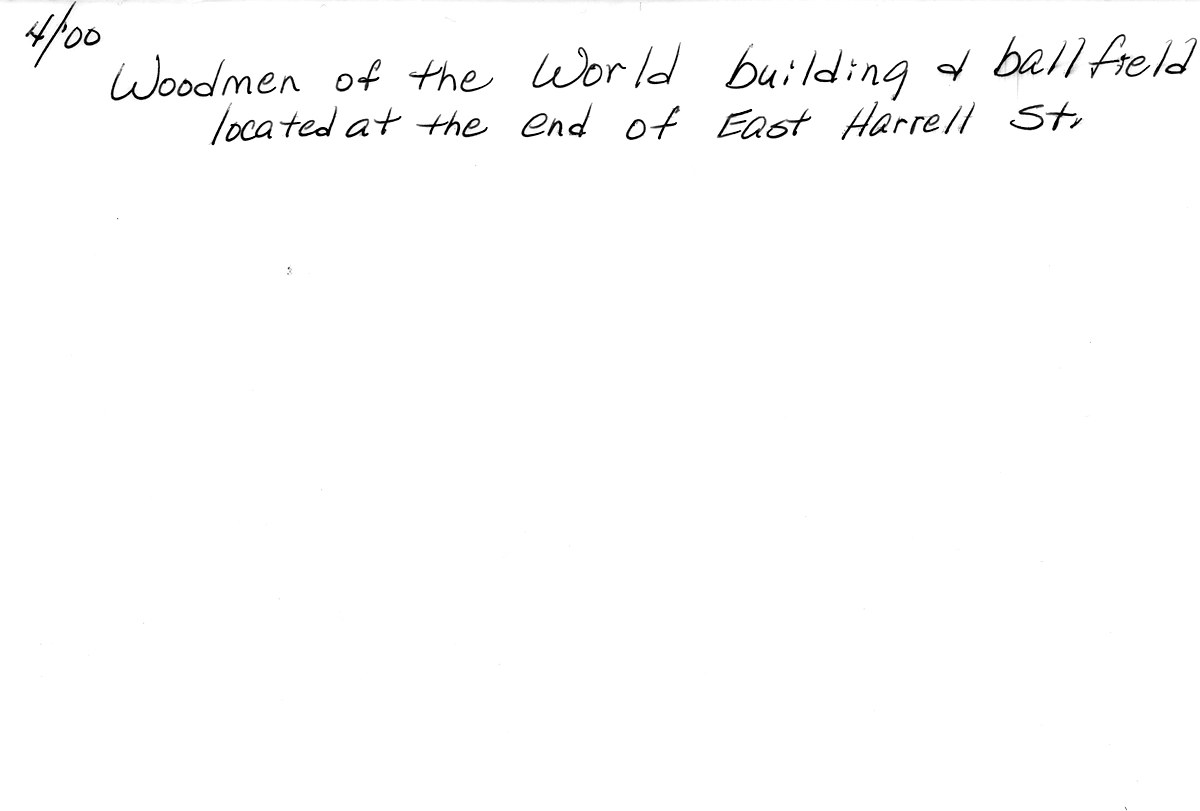 4/'00
Woodmen of the World building & ballfield
located at the end of East Harrell St.